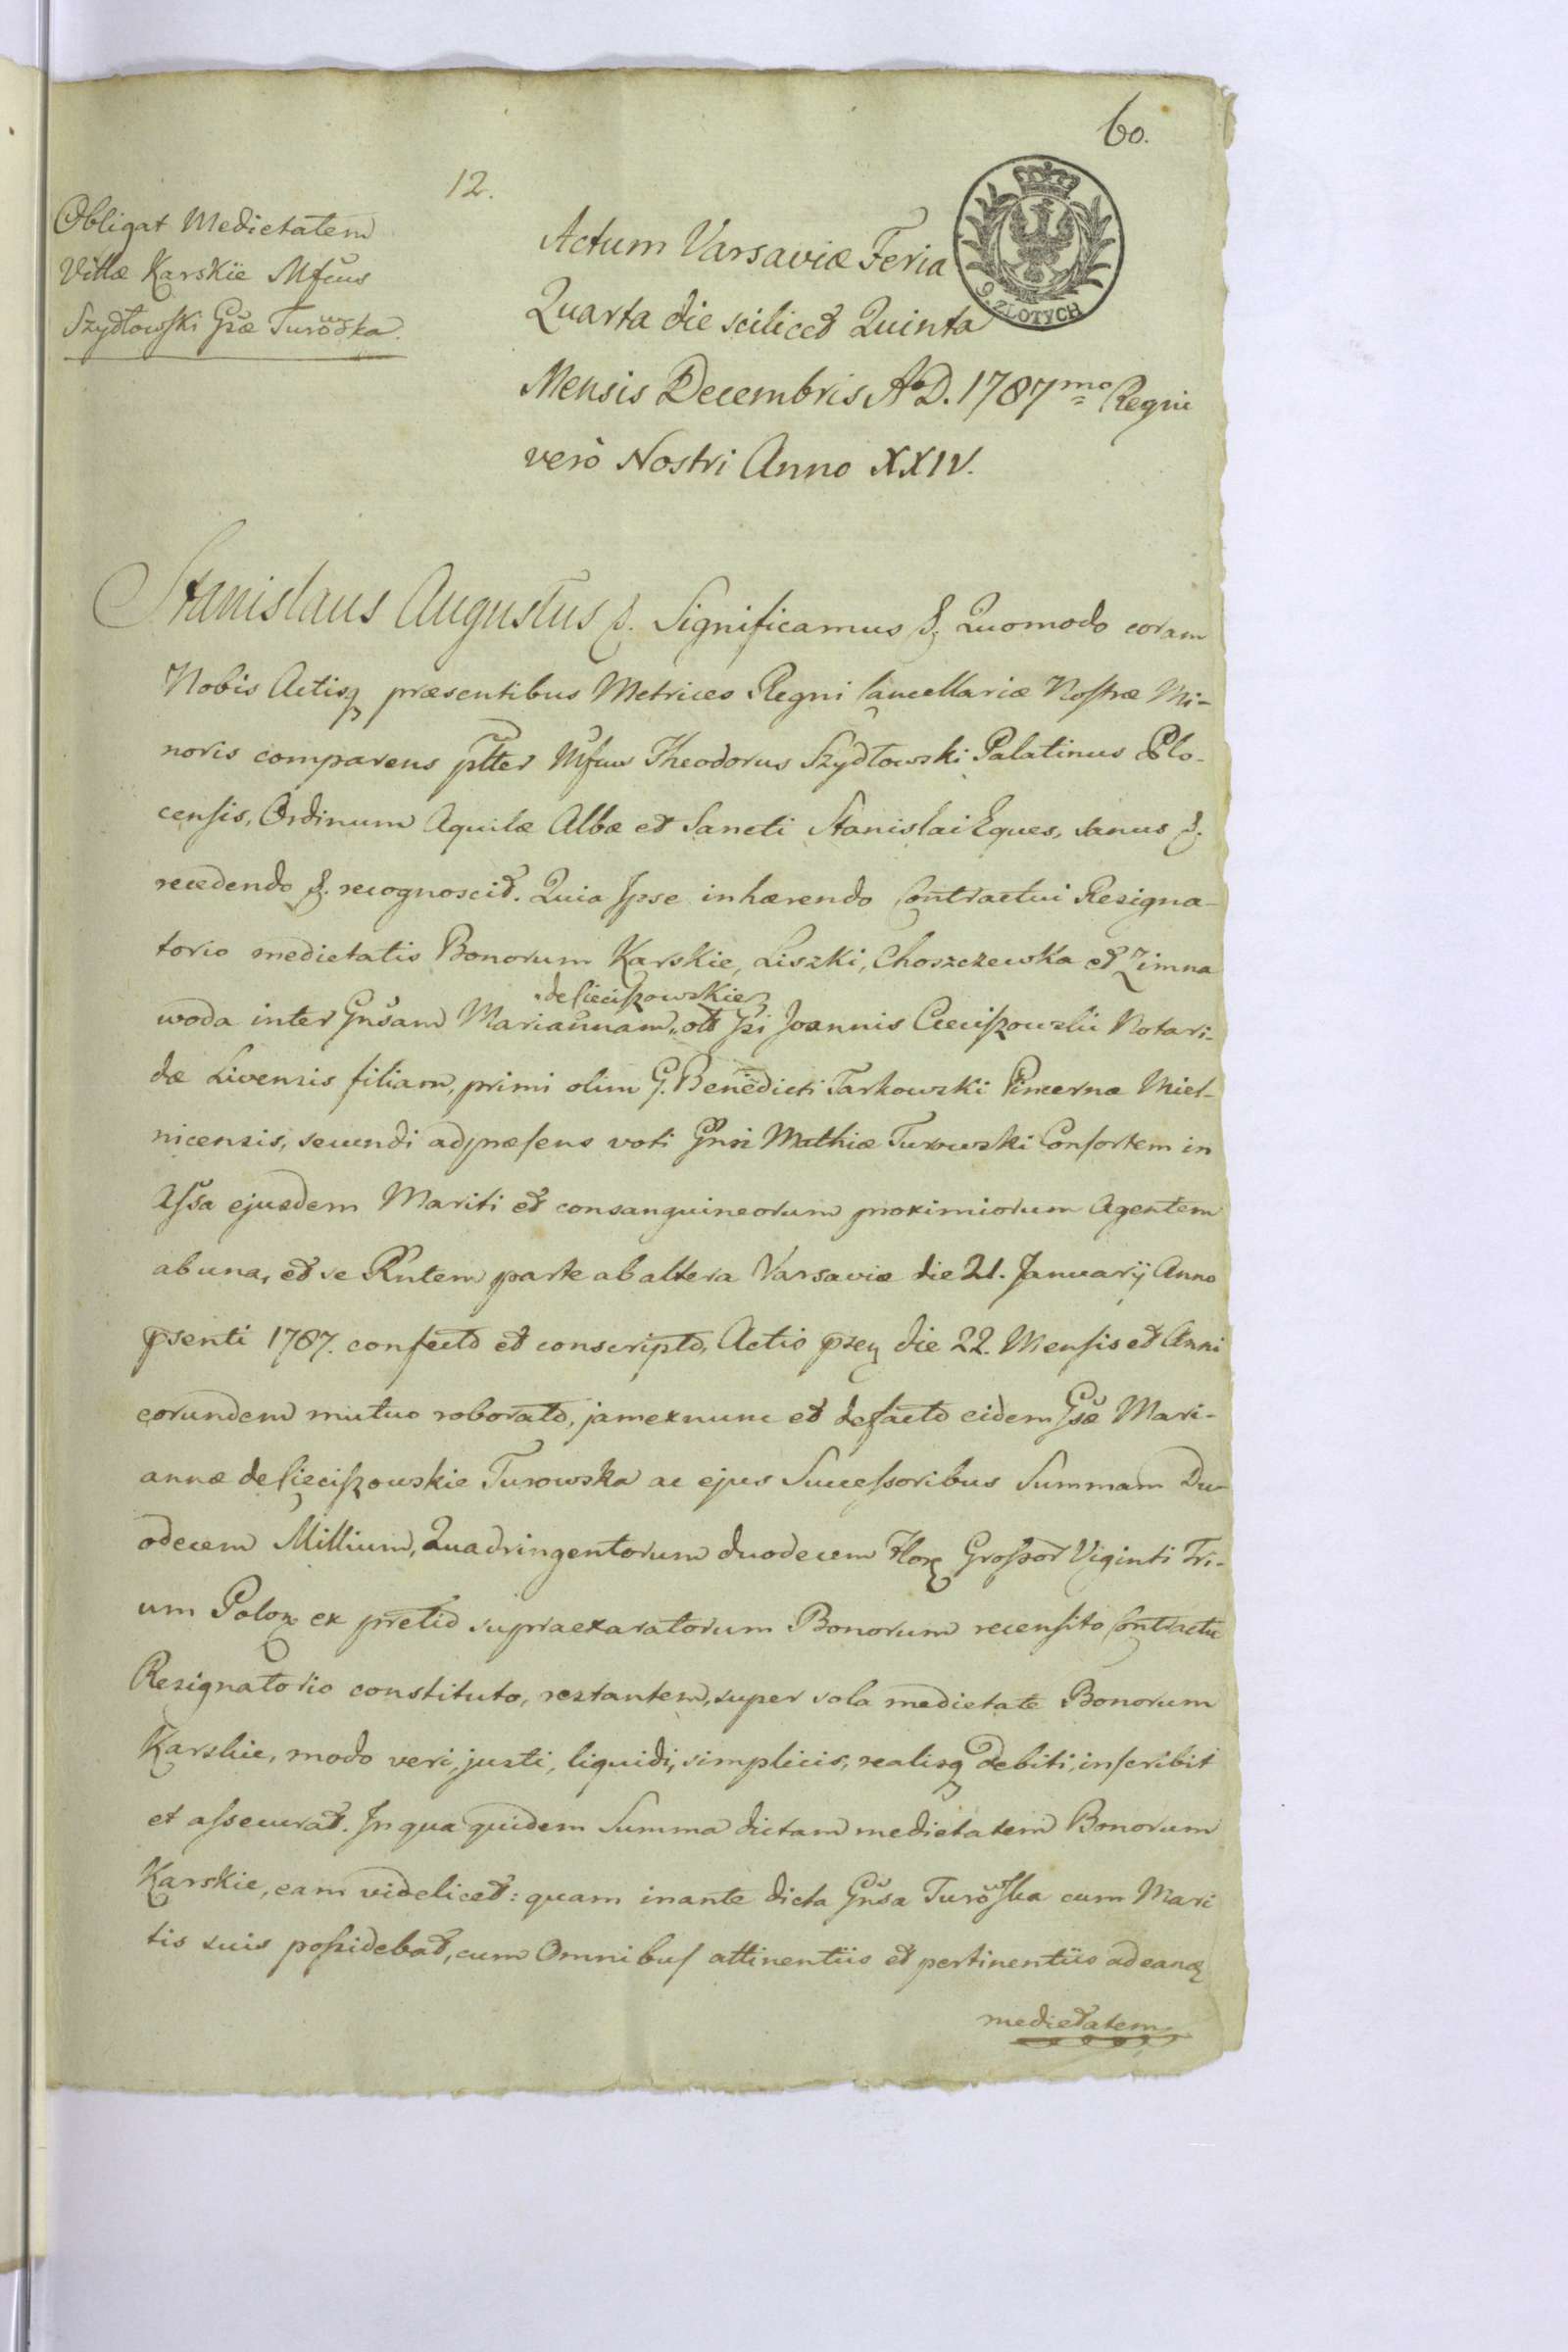 60.
12.
Obligat Medietatem
Villæ Karskie Mfcus
Szydłowski Gsæ Turowska.
9 ZŁOTYCH
Actum Varsaviæ Feria
Quarta die scilicet Quinta
Mensis Decembris Ao D. 1787mo Regni
verò Nostri Anno XXIV.
Stanislaus Augustus &. Significamus &. Quomodo coram
Nobis Actisq præsentibus Metrices Regni Cancellariæ Nostræ Mi-
noris comparens pltter Mfcus Theodorus Szydłowski Palatinus Plo-
censis, Ordinum Aquilæ Albæ et Sancti Stanislai Eques, sanus &.
recedendo &. recognoscit. Quia Ipse inhærendo Contractui Resigna-
torio medietatis Bonorum Karskie, Liszki, Choszczewka et Zimna
de Cieciszowskie
woda inter Gnsam Mariannam, olt Gsi Joannis Cieciszowski Notari-
dæ Livensis filiam, primi olim G. Benedicti Tarkowski Pincernæ Miel-
nicensis, secundi adpræsens voti Gnsi Mathiæ Turowski Consortem in
Assa ejusdem Mariti et consanguineorum proximiorum Agentem
ab una, et se Rntem parte ab altera Varsaviæ die 21. Januarij Anno
psenti 1787. confecto et conscripto, Actis psen die 22. Mensis et Anni
eorundem mutuo roborato, jam ex nunc et defacto eidem Gsæ Mari-
annæ de Cieciszowskie Turowska ac ejus Successoribus Summam Du-
odecem Millium, Quadringentorum duodecem Flor Grossor Viginti Tri-
um Polon ex pretio supraexaratorum Bonorum recensito Contractu
Resignatorio constituto, restantem, super sola medietate Bonorum
Karskie, modo veri, justi, liquidi, simplicis, realisq debiti, inscribit
et assecurat. In qua quidem Summa dictam medietatem Bonorum
Karskie, eam videlicet: quam inante dicta Gnsa Turowska cum Mari
tis suis possidebat, cum Omnibus attinentiis et pertinentiis ad eandem
medietatem